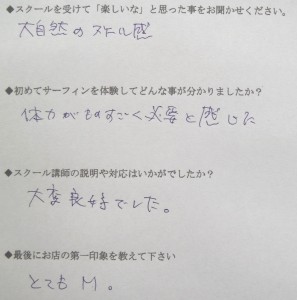 ◆スクールを受けて「楽しいな」と思った事をお聞かせください。
大自然のスケール感
◆初めてサーフィンを体験してどんな事が分かりましたか？
体力がものすごく必要と感じた
◆スクール講師の説明や対応はいかがでしたか？
大変良好でした。
◆最後にお店の第一印象を教えて下さい
とても M。